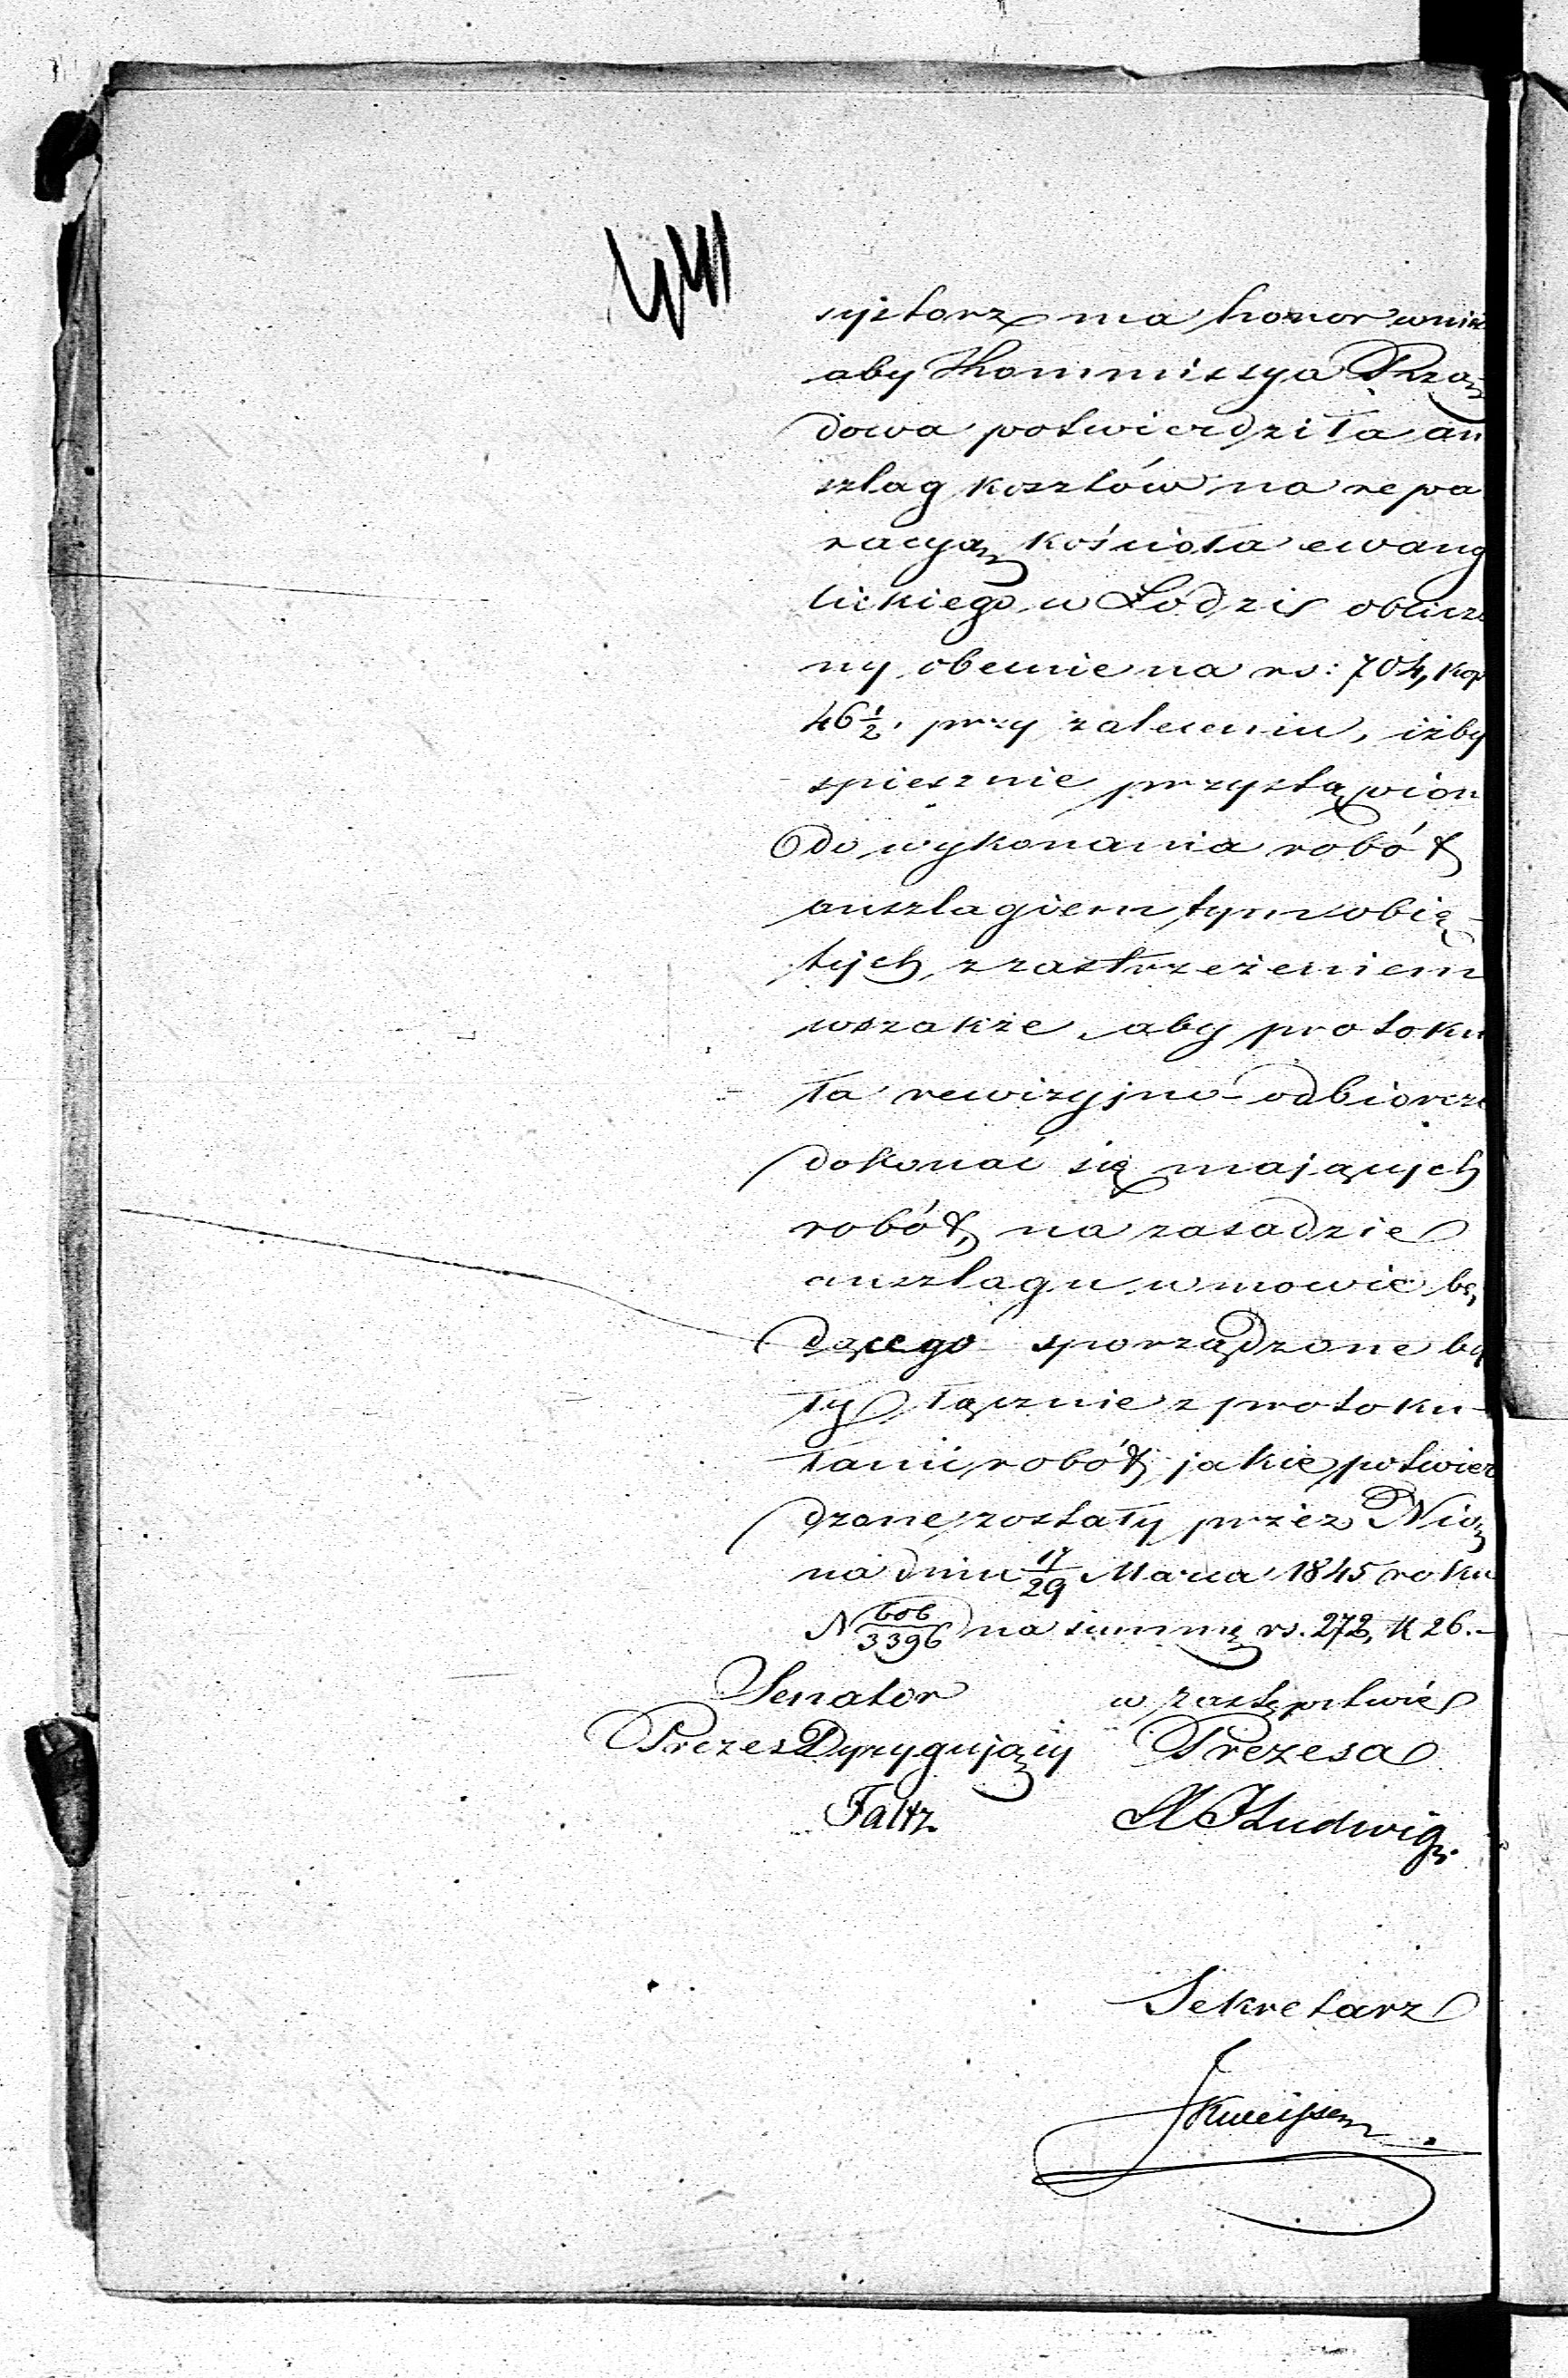 441
systorz ma honor wnieś
aby Kommissya Rzą
dowa potwierdziła an
szlag kosztów na repa
racyą kościoła ewang
lickiego w Łodzi oblicz
ny obecnie na rs: 704, kop
46 1/2. przy zaleceniu, iżby
spiesznie przystąpion
do wykonania robót
anszlagiem tym obię-
tych, z zastrzeżeniem
wszakże, aby protoku
ła rewizyjno-odbiorcze
dokonać się mających
robót, na zasadzie
anszlagu w mowie bę
dącego sporządzone by
ły łącznie z protoku-
łami robót jakie potwier
dzone zostały przez Nią
na dniu 17/29 Marca 1845 roku
N 606/3396 na summę rs. 272, k 26.-
Senator w zastępstwie
Prezes Dyrygujący Prezesa
Faltz. Ludwig.
Sekretarz